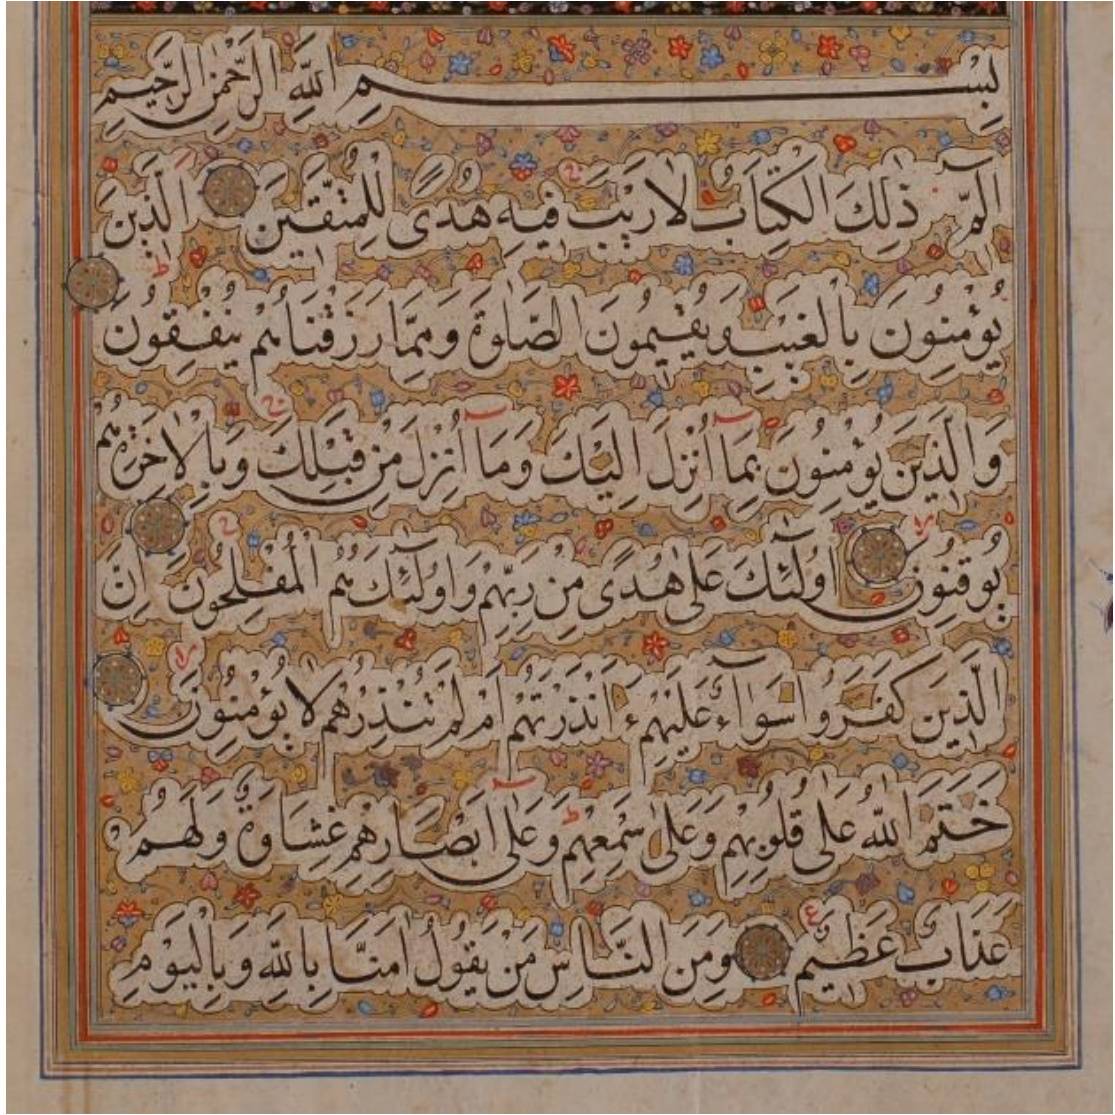 بِسْمِ اللّٰهِ الرَّحْمٰنِ الرَّحِيمِ
الٓمّٓ ذٰلِكَ الْكِتَابُ لَا رَيْبَ فِيهِ هُدًى لِلْمُتَّقِينَ الَّذِينَ
يُؤْمِنُونَ بِالْغَيْبِ وَيُقِيمُونَ الصَّلٰوةَ وَمِمَّا رَزَقْنَاهُمْ يُنْفِقُونَ
وَالَّذِينَ يُؤْمِنُونَ بِمَآ اُنْزِلَ اِلَيْكَ وَمَآ اُنْزِلَ مِنْ قَبْلِكَ وَبِالْاٰخِرَةِ هُمْ
يُوقِنُونَ اُولٰٓئِكَ عَلٰى هُدًى مِنْ رَبِّهِمْ وَاُولٰٓئِكَ هُمُ الْمُفْلِحُونَ اِنَّ
الَّذِينَ كَفَرُوا سَوَآءٌ عَلَيْهِمْ ءَاَنْذَرْتَهُمْ اَمْ لَمْ تُنْذِرْهُمْ لَا يُؤْمِنُونَ
خَتَمَ اللّٰهُ عَلٰى قُلُوبِهِمْ وَعَلٰى سَمْعِهِمْ وَعَلٰٓى اَبْصَارِهِمْ غِشَاوَةٌ وَلَهُمْ
عَذَابٌ عَظِيمٌ وَمِنَ النَّاسِ مَنْ يَقُولُ اٰمَنَّا بِاللّٰهِ وَبِالْيَوْمِ